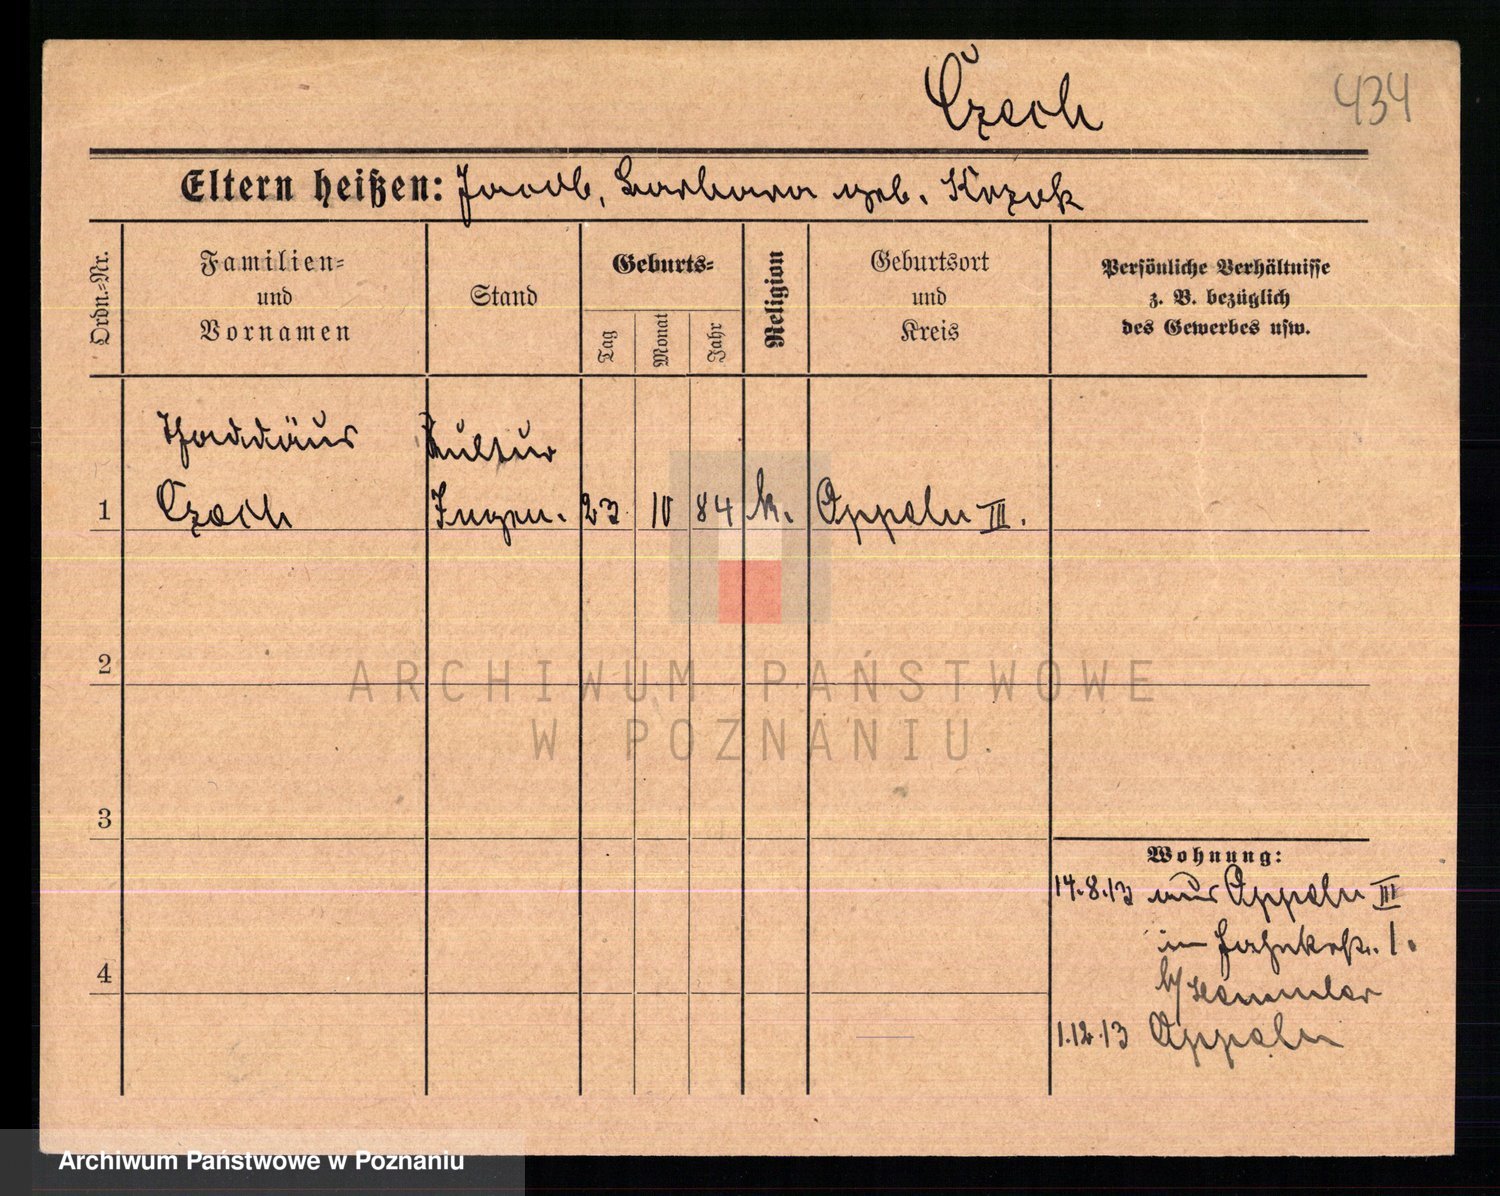 Czech
434
Eltern heißen: Jacob, Barbara geb. Krzok
Ordn.-Nr.
Familien-
und
Vornamen
Stand
Geburts-
Tag
Monat
Jahr
Religion
Geburtsort
und
Kreis
Persönliche Verhältnisse
z. B. bezüglich
des Gewerbes usw.
Thaddäus
Czech
Kultur
Ingen.
1
23
10
84
k.
Oppeln III.
2
3
4
Wohnung:
14.8.13 aus Oppeln III
in
1.
b/
1.12.13 Oppeln
ARCHIWUM PAŃSTWOWE
W POZNANIU
Archiwum Państwowe w Poznaniu